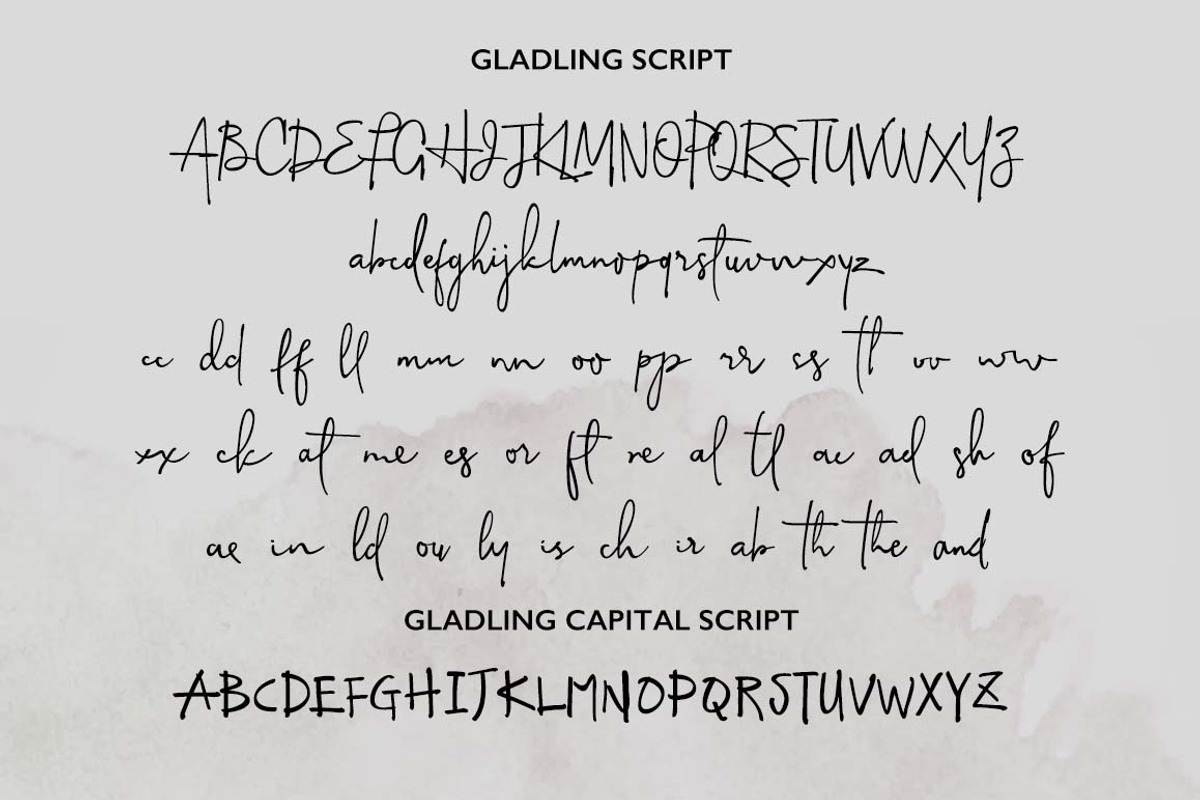 GLADLING SCRIPT
ABCDEFGHIJKLMNOPQRSTUVWXYZ
abcdefghijklmnopqrstuvwxyz
cc dd ff ll mm nn oo pp rr ss tt vv ww
xx ck at me es or ft re al tl ac ad sh of
ae in ld ow ly is ch ir ab th the and
GLADLING CAPITAL SCRIPT
ABCDEFGHIJKLMNOPQRSTUVWXYZ